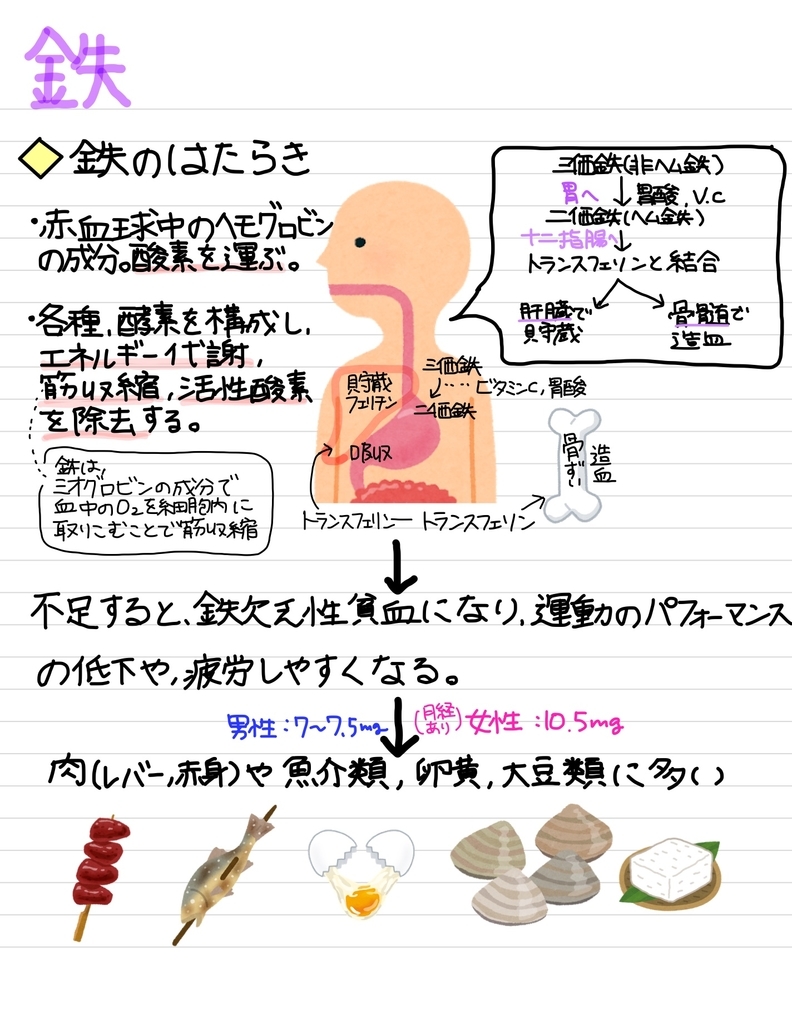 鉄
鉄のはたらき
・赤血球中のヘモグロビン
の成分。酸素を運ぶ。
・各種、酵素を構成し、
エネルギー代謝、
筋収縮、活性酸素
を除去する。
鉄は、
ミオグロビンの成分で
血中のO₂を細胞内に
取りこむことで筋収縮
三価鉄(非ヘム鉄)
胃へ ↓ 胃酸、V.C
二価鉄(ヘム鉄)
十二指腸へ ↓
トランスフェリンと結合
肝臓で
貯蔵
骨髄で
造血
貯蔵
フェリチン
三価鉄
ビタミンC、胃酸
二価鉄
吸収
骨ずい
造血
トランスフェリン ー トランスフェリン
不足すると、鉄欠乏性貧血になり、運動のパフォーマンス
の低下や、疲労しやすくなる。
男性:7〜7.5mg
(月経あり)女性:10.5mg
肉(レバー、赤身)や魚介類、卵黄、大豆類に多い